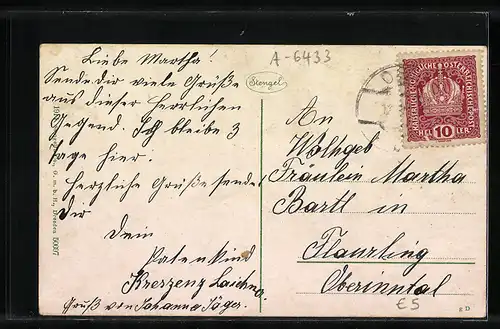 A-6433
Liebe Martha!
Sende dir viele Grüße
aus dieser herrlichen
Gegend. Ich bleibe 3
Tage hier.
Herzliche Grüße sendet
Dir
Dein
Patenkind
Kreszenz
Gruß von Johanna Jäger.
Stengel
G. m. b. H., Dresden
KAISERLICHE KÖNIGLICHE ÖSTERREICHISCHE POST
HELLER
10
An
Wohlgeb
Fräulein Martha
Bartl in
Flaurling
Oberinntal
E5